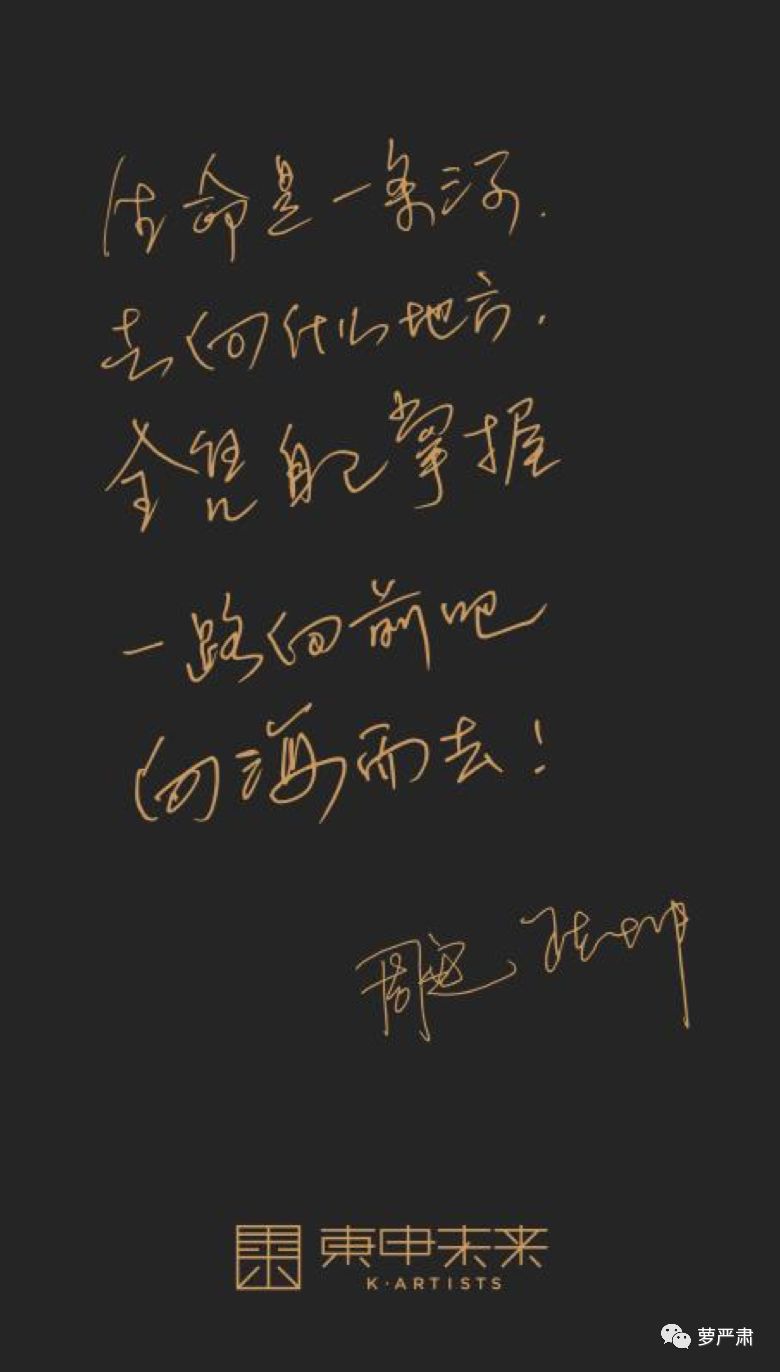 生命是一条河.
去向什么地方.
全凭自己掌握
一路向前吧
向海而去！
周迅 陈坤
東申未来
K·ARTISTS
萝严肃